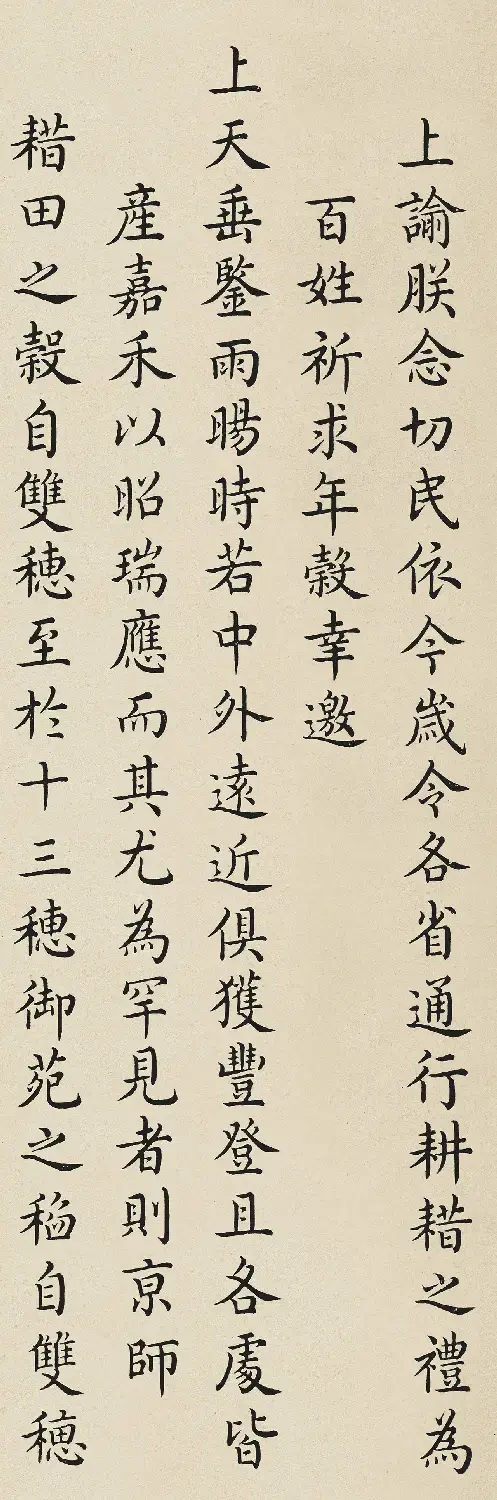 上諭朕念切民依今歲令各省通行耕耤之禮為
百姓祈求年穀幸邀
上天垂鑒雨暘時若中外遠近俱獲豐登且各處皆
產嘉禾以昭瑞應而其尤為罕見者則京師
耤田之穀自雙穗至於十三穗御苑之稻自雙穗